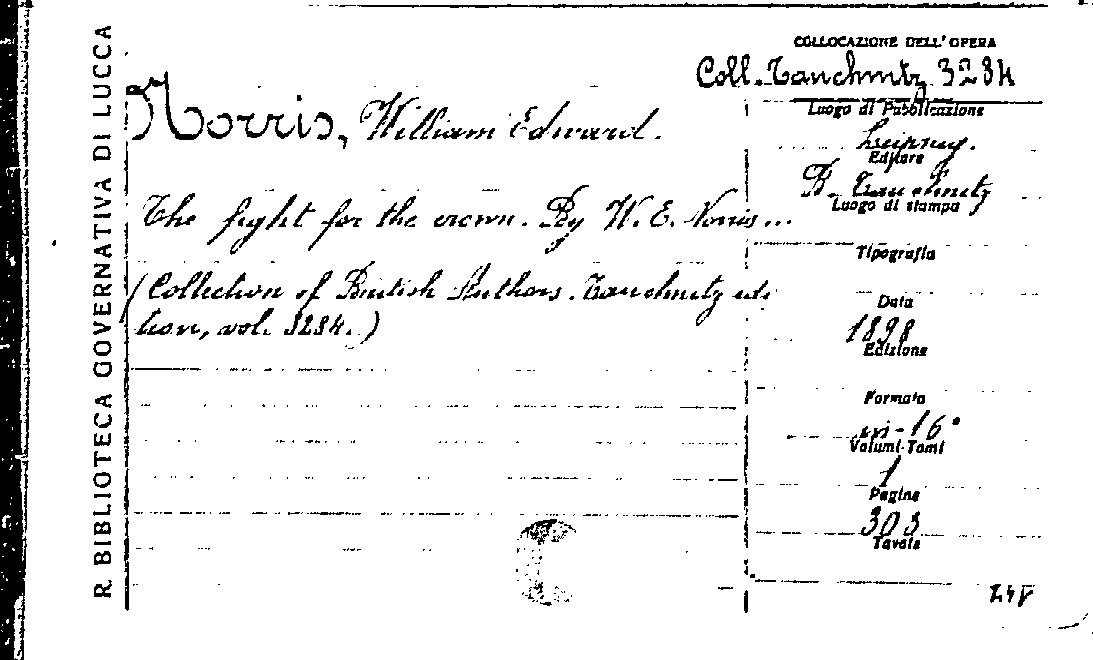 R. BIBLIOTECA GOVERNATIVA DI LUCCA
Norris, William Edward.
The fight for the crown. By W. E. Norris...
(Collection of British Authors. Tauchnitz edi-
tion, vol. 3284.)
COLLOCAZIONE DELL'OPERA
Coll. Tauchnitz 3284
Luogo di Pubblicazione
Leipzig.
Editore
B. Tauchnitz
Luogo di stampa
Tipografia
Data
1898
Edizione
Formato
in-16°
Volumi-Tomi
1
Pagine
303
Tavole